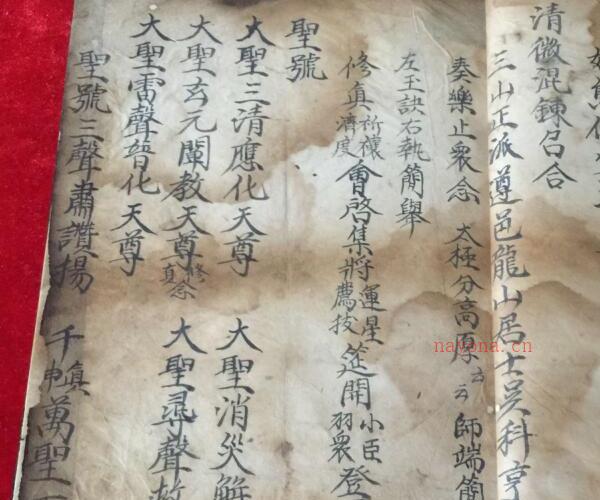 清微混鍊召合
三山正派遵邑龍山居士吳科亨
奏樂止衆念 太極分高厚云云師端簡
左玉訣右執簡舉
修真祈禳濟度會啓集將運星薦拔筵開小臣羽衆登
聖號
大聖三清應化天尊 大聖消災解
大聖玄元闡教天尊修真念 大聖尋聲救
大聖雷聲普化天尊
聖號三聲肅讚揚 千真萬聖
nayona.cn